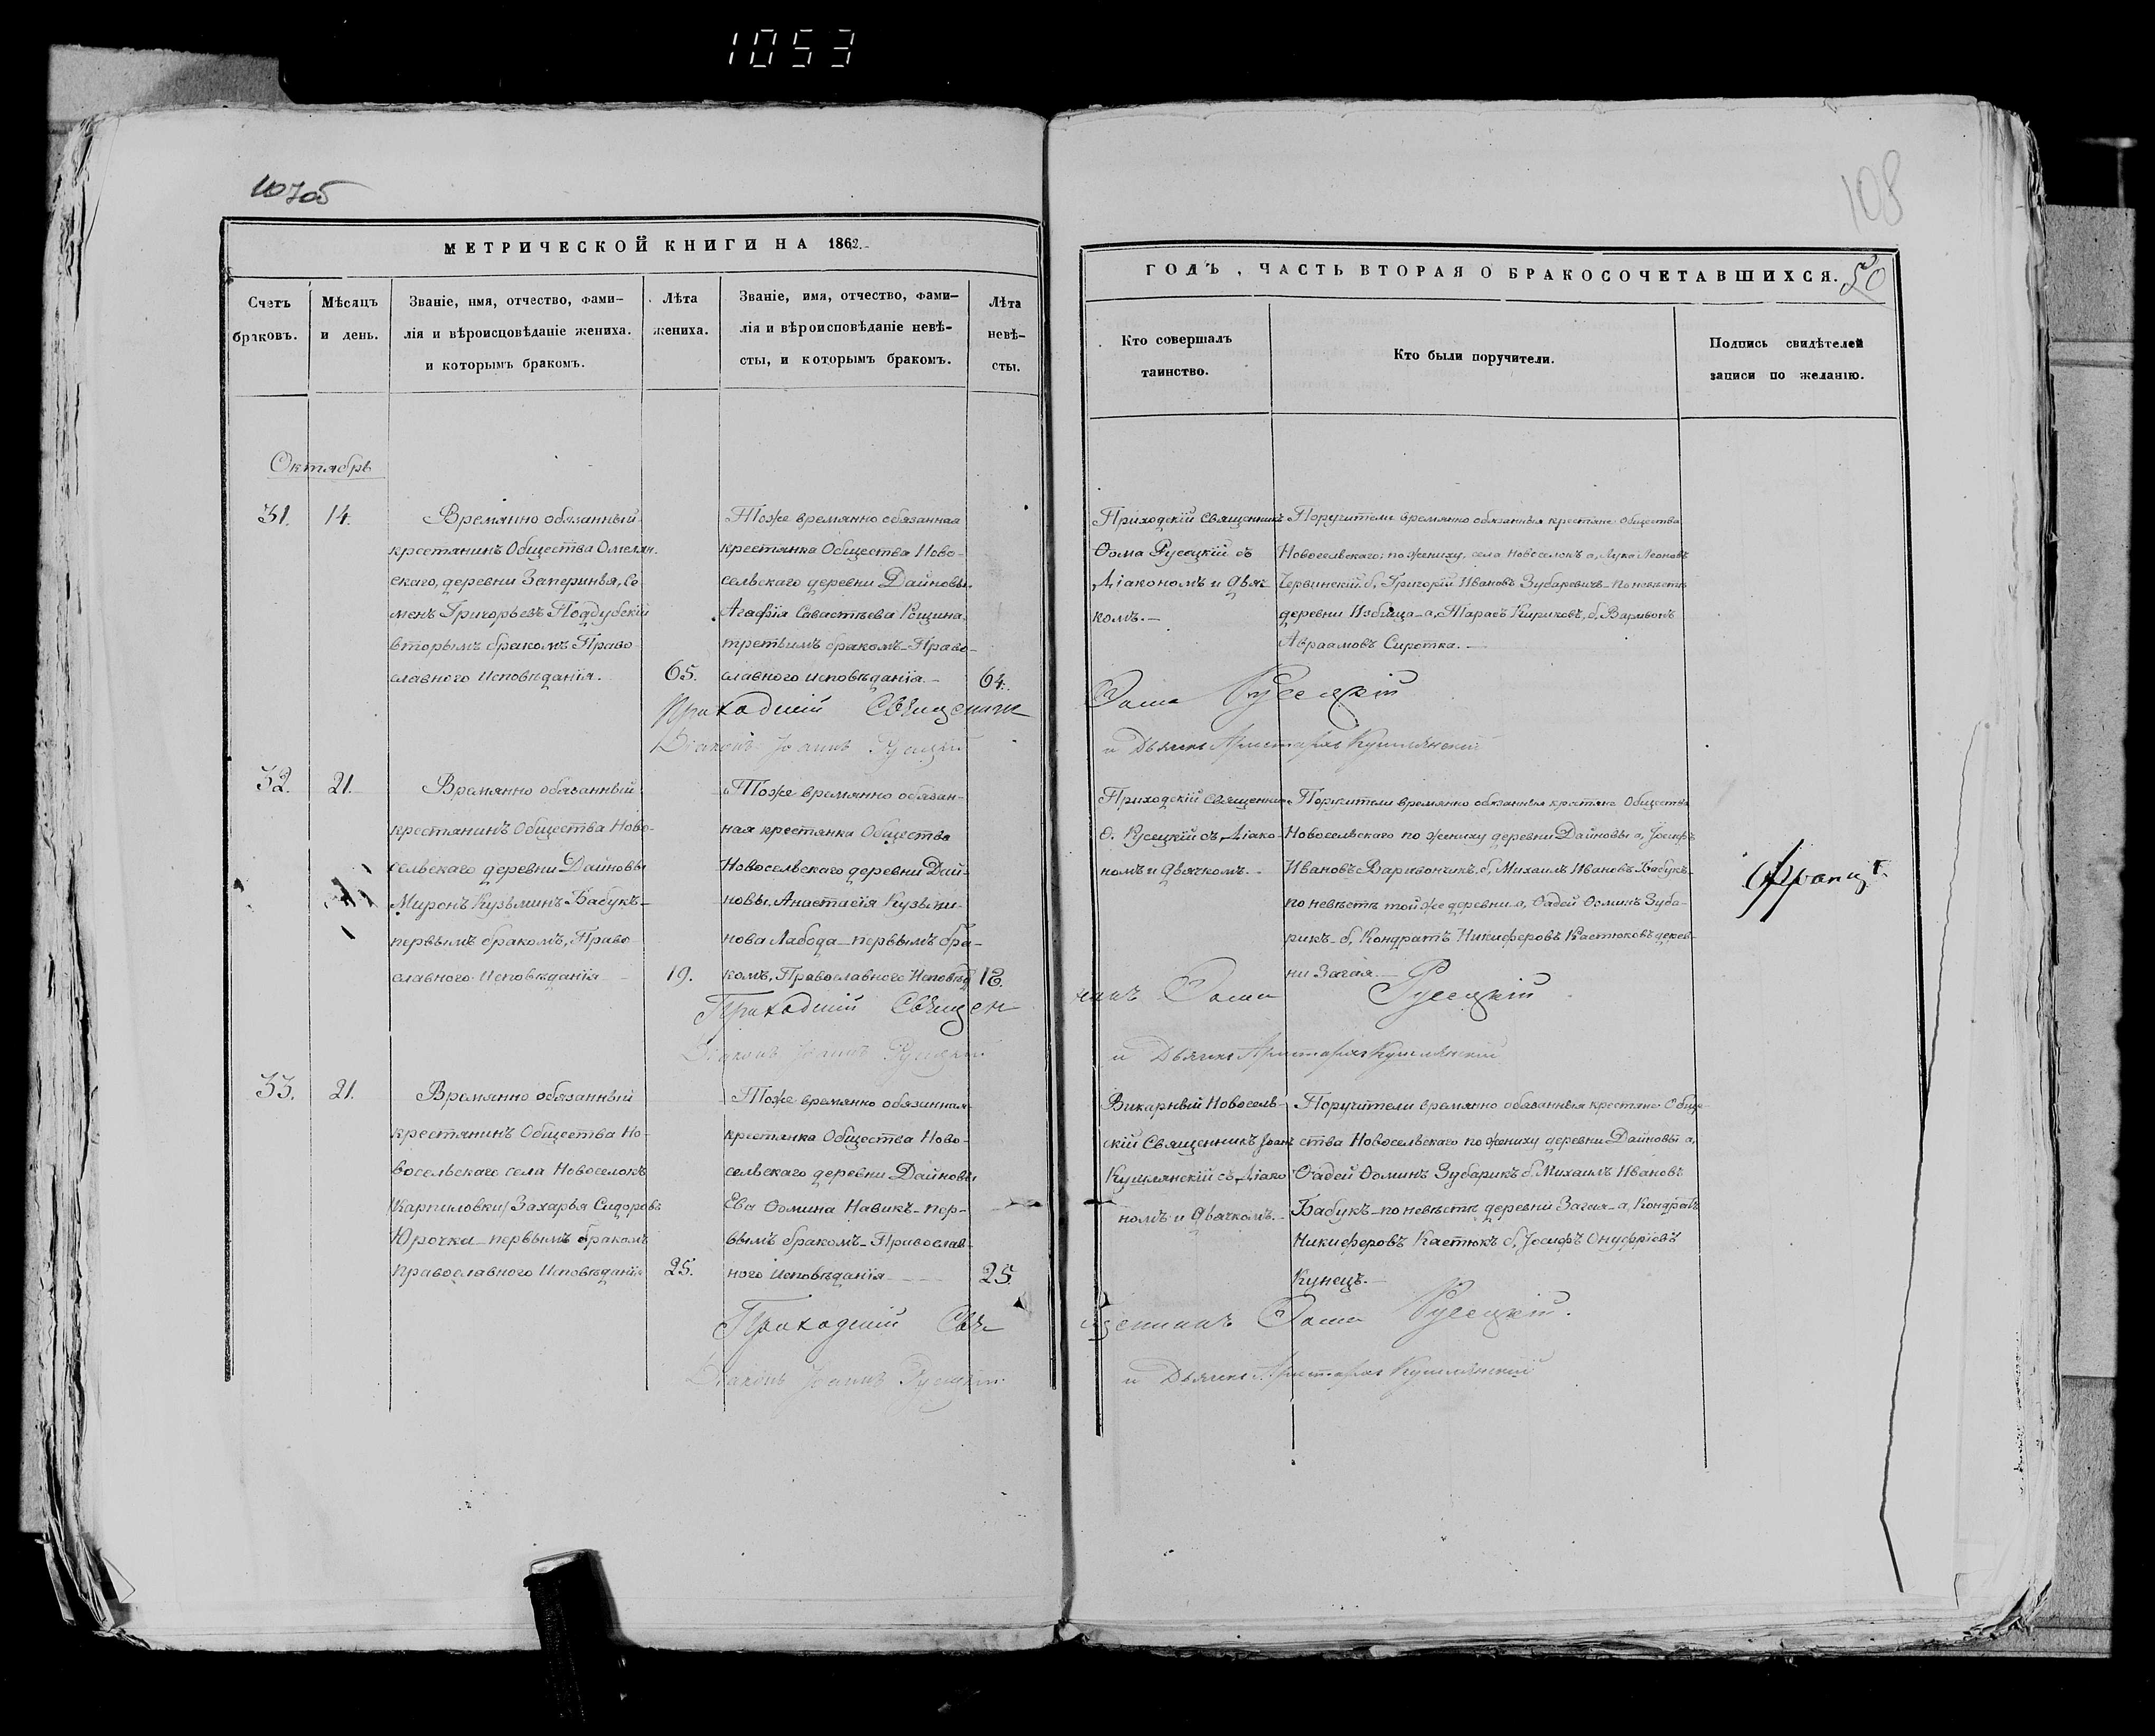 1053
107об
108
МЕТРИЧЕСКОЙ КНИГИ НА 1862.
Счетъ браковъ.
Мѣсяцъ и день.
Званіе, имя, отчество, фами-
лія и вѣроисповѣданіе жениха.
и которымъ бракомъ.
Лѣта жениха.
Званіе, имя, отчество, фами-
лія и вѣроисповѣданіе невѣ-
сты, и которымъ бракомъ.
Лѣта невѣ-
сты.
ГОДЪ, ЧАСТЬ ВТОРАЯ О БРАКОСОЧЕТАВШИХСЯ.
50
Кто совершалъ
таинство.
Кто были поручители.
Подпись свидѣтелей
записи по желанію.
Октябрь
31. 14.
Времянно обязанный
крестьянинъ Общества Омелян-
скаго, деревни Заперинья, Се-
менъ Григорьевъ Поддубскій
вторымъ бракомъ Право
славного Исповѣданія.
65.
Тоже времянно обязанная
крестянка Общества Ново-
сельскаго деревни Дайновы.
Агафія Савастьева Рощина
третьимъ бракомъ Право-
славного исповѣданія.
64.
Приходскій священникъ
Ѳома Русецкій съ
Діакономъ и Дьяч
комъ.
Поручители времянно обязанныя крестяне общества
Новосельскаго: по жениху, села Новоселокъ а, Лука Леоновъ
Червинскій. б, Григорій Ивановъ Зубаревичъ по невѣстѣ
деревни Избища а, Тарасъ Кириковъ, б,
Авраамовъ Сиротка.
Приходскій Священникъ Ѳома Русецкій
Діаконъ Іоаннъ Русецкій и Дьячекъ Аристархъ Кушлянскій
32. 21.
Времянно обязанный
крестянинъ Общества Ново-
сельскаго деревни Дайновы
Миронъ Кузьминъ Бабукъ
первымъ бракомъ, Право
славного Исповѣданія
19.
Тоже времянно обязан-
ная крестянка Общества
Новосельскаго деревни Дай-
новы Анастасія Кузьми-
нова Лабода первымъ бра-
комъ, Православного Исповѣд
Приходскій священник
Ѳ. Русецкій съ Діако-
номъ и Дьячкомъ.
Поручители времянно обязанныя крестяне Общества
Новосельскаго по жениху деревни Дайновы а, Іосифъ
Ивановъ Варивончикъ б, Михаилъ Ивановъ Бабукъ
по невѣстѣ той же деревни а, Ѳадей Ѳоминъ Зуба-
рикъ б, Кондратъ Никифоровъ Кастюковъ дерев-
ни Загая.
Приходскій Священникъ Ѳома Русецкій
Діаконъ Іоаннъ Русецкій и Дьячекъ Аристархъ Кушлянскій
33. 21.
Времянно обязанный
крестянинъ Общества Но-
восельскаго села Новоселокъ
/Карпиловки/ Захарья Сидоровъ
Юрочка первымъ бракомъ
Православного Исповѣданія
25.
Тоже времянно обязанная
крестянка Общества Ново-
сельскаго деревни Дайновы
Ева Ѳомина Навикъ пер-
вымъ бракомъ Православ-
ного Исповѣданія
25.
Викарный Новосель-
скій Священникъ Іоан
Кушлянскій съ Діако
номъ и Дьячкомъ.
Поручители времянно обязанныя крестяне Обще-
ства Новосельскаго по жениху деревни Дайновы а,
Ѳадей Ѳоминъ Зубарикъ б, Михаилъ Ивановъ
Бабукъ по невѣстѣ деревни Загая а, Кондратъ
Никифоровъ Кастюкъ б, Іосифъ Онуфріевъ
Кунецъ.
Приходскій Священникъ Ѳома Русецкій.
Діаконъ Іоаннъ Русецкій и Дьячекъ Аристархъ Кушлянскій